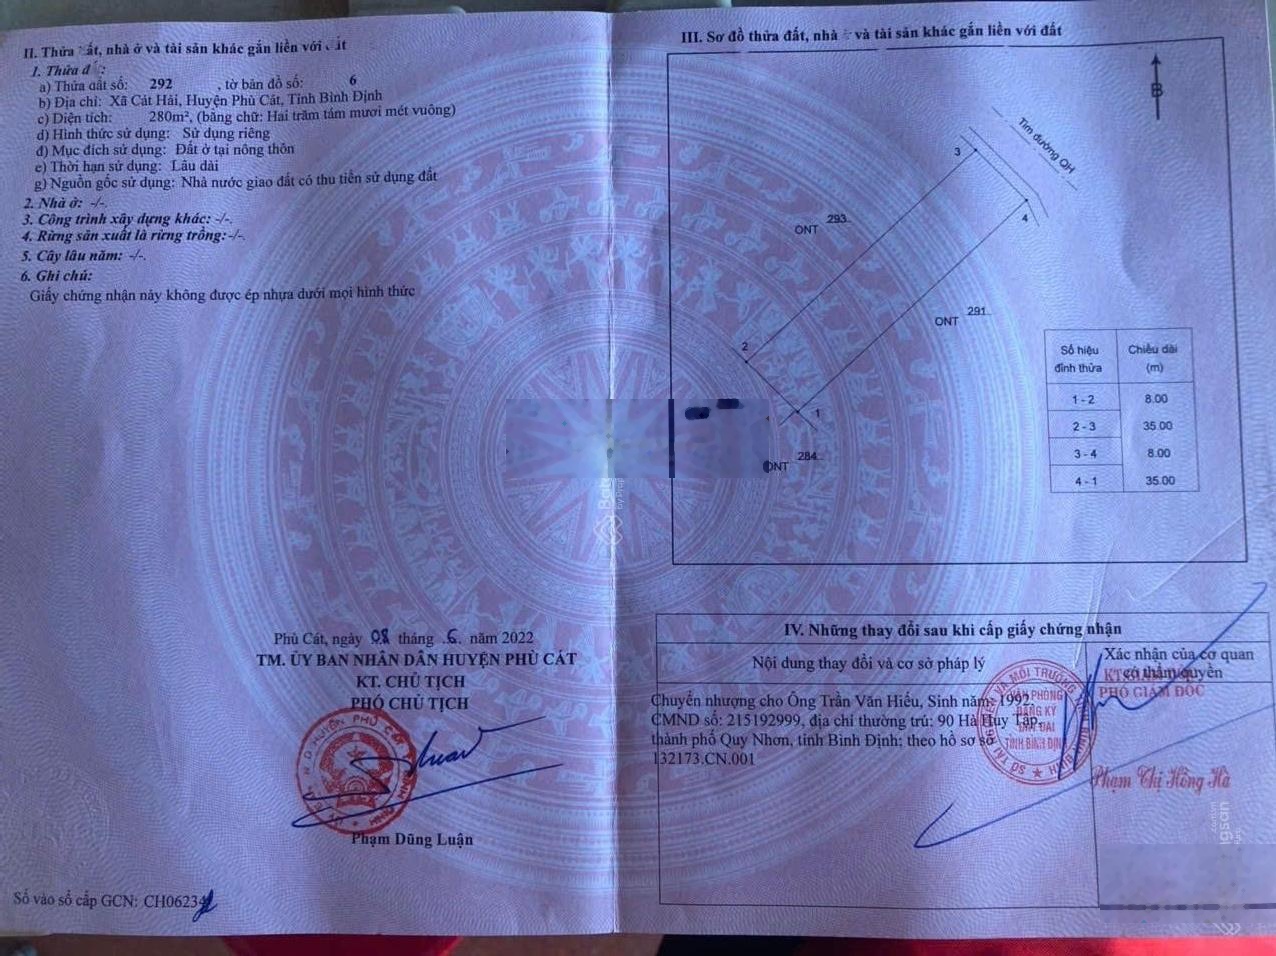 II. Thửa đất, nhà ở và tài sản khác gắn liền với đất
1. Thửa đất:
a) Thửa đất số: 292 , tờ bản đồ số: 6
b) Địa chỉ: Xã Cát Hải, Huyện Phù Cát, Tỉnh Bình Định
c) Diện tích: 280m², (bằng chữ: Hai trăm tám mươi mét vuông)
d) Hình thức sử dụng: Sử dụng riêng
đ) Mục đích sử dụng: Đất ở tại nông thôn
e) Thời hạn sử dụng: Lâu dài
g) Nguồn gốc sử dụng: Nhà nước giao đất có thu tiền sử dụng đất
2. Nhà ở: -/-.
3. Công trình xây dựng khác: -/-.
4. Rừng sản xuất là rừng trồng:-/-.
5. Cây lâu năm: -/-.
6. Ghi chú:
Giấy chứng nhận này không được ép nhựa dưới mọi hình thức
Phù Cát, ngày 08 tháng .6. năm 2022
TM. ỦY BAN NHÂN DÂN HUYỆN PHÙ CÁT
KT. CHỦ TỊCH
PHÓ CHỦ TỊCH
Phạm Dũng Luận
Số vào sổ cấp GCN: CH0623
III. Sơ đồ thửa đất, nhà ở và tài sản khác gắn liền với đất
B
Tim đường QH
3
4
ONT 293
ONT 291
2
1
ONT 284
Số hiệu đỉnh thửa Chiều dài (m)
1 - 2 8.00
2 - 3 35.00
3 - 4 8.00
4 - 1 35.00
IV. Những thay đổi sau khi cấp giấy chứng nhận
Nội dung thay đổi và cơ sở pháp lý
Xác nhận của cơ quan
có thẩm quyền
Chuyển nhượng cho Ông Trần Văn Hiếu, Sinh năm 1992,
CMND số: 215192999, địa chỉ thường trú: 90 Hà Huy Tập,
thành phố Quy Nhơn, tỉnh Bình Định; theo hồ sơ số
132173.CN.001
VĂN PHÒNG
ĐĂNG KÝ
ĐẤT ĐAI
TỈNH BÌNH ĐỊNH
PHÓ GIÁM ĐỐC
Phạm Thị Hồng Hà